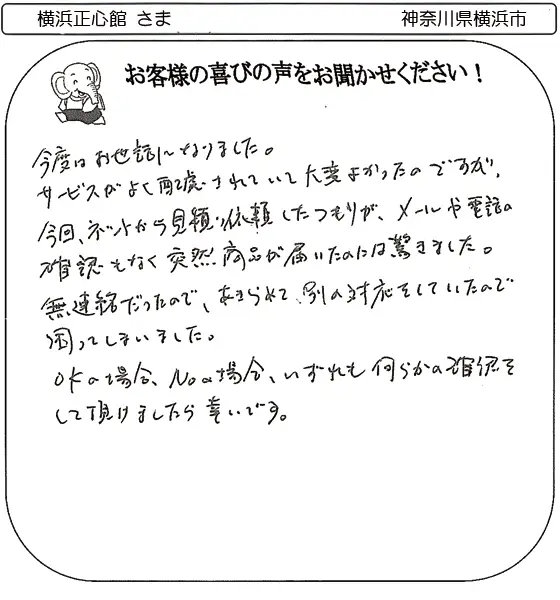 横浜正心館 さま 神奈川県横浜市
お客様の喜びの声をお聞かせください！
今度はお世話になりました。
サービスがよく配慮されていて大変よかったのですが、
今回、ネットから見積り依頼したつもりが、メールや電話の
確認もなく突然商品が届いたのには驚きました。
無連絡だったので、あきらめて、別の対応をしていたので
困ってしまいました。
OKの場合、Noの場合、いずれも何らかの確認を
して頂けましたら幸いです。